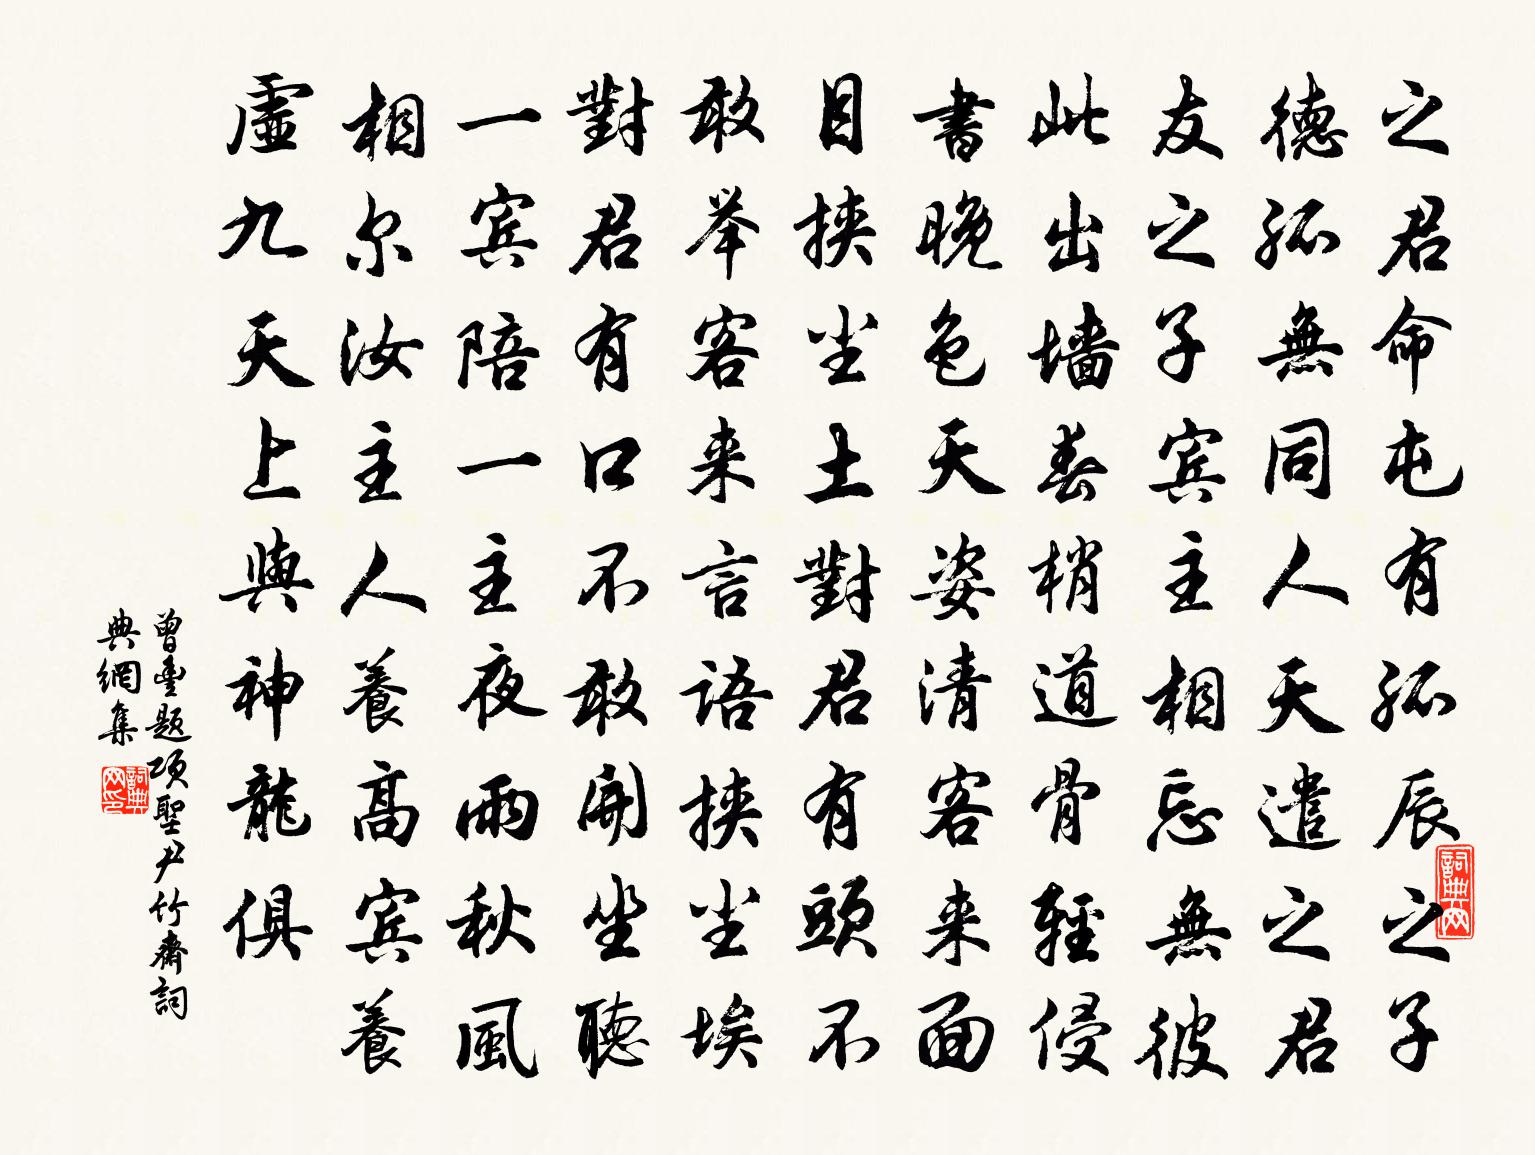 之君命屯有孤辰之子
德孤無同人天遣之君
友之子賓主相忘無彼
此出墻春梢道骨輕侵
書晚色天姿清客来面
目挾尘土對君有頭不
敢举客来言語挾尘埃
對君有口不敢開坐聽
一賓陪一主夜雨秋風
相尔汝主人養高賓養
虛九天上與神龍俱
曾豐题项聖尹竹齋詞
典網集
詞典网
詞典网印